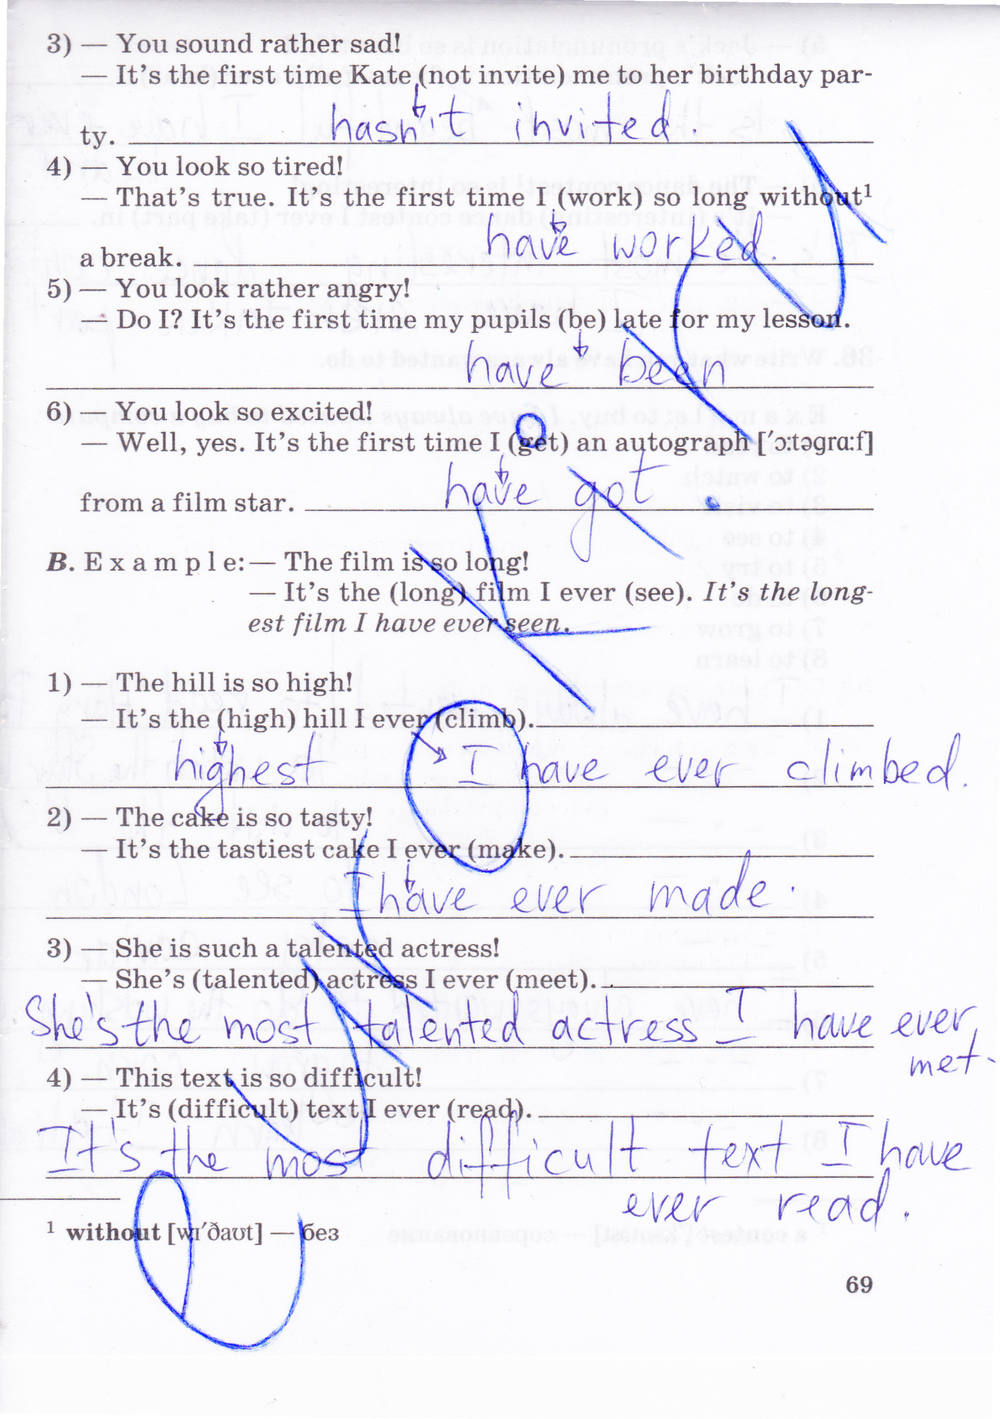 3) — You sound rather sad!
— It's the first time Kate (not invite) me to her birthday par-
hasn't invited.
ty.
4) — You look so tired!
— That's true. It's the first time I (work) so long without¹
have worked.
a break.
5) — You look rather angry!
— Do I? It's the first time my pupils (be) late for my lesson.
have been
6) — You look so excited!
— Well, yes. It's the first time I (get) an autograph [ˈɔːtəɡrɑːf]
have got.
from a film star.
B. Example: — The film is so long!
— It's the (long) film I ever (see). It's the long-
est film I have ever seen.
1) — The hill is so high!
— It's the (high) hill I ever (climb).
highest I have ever climbed.
2) — The cake is so tasty!
— It's the tastiest cake I ever (make).
I have ever made.
3) — She is such a talented actress!
— She's (talented) actress I ever (meet).
She's the most talented actress I have ever
met.
4) — This text is so difficult!
— It's (difficult) text I ever (read).
It's the most difficult text I have
ever read.
¹ without [wɪˈðaʊt] — без
69